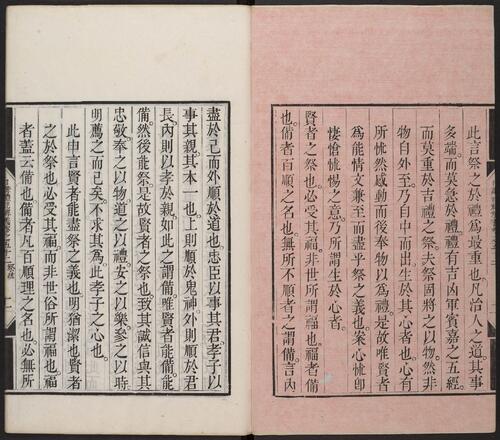 此言祭之於禮爲最重也凡治人之道其事
多端而莫急於禮禮有吉凶軍賓嘉之五經
而莫重於吉禮之祭夫祭固將之以物然非
物自外至乃自中而出生於其心者也心有
所怵然感動而後奉物以爲禮是故唯賢者
爲能情文兼至而盡乎祭之義也案心怵即
悽愴怵惕之意乃所謂生於心者
賢者之祭也必受其福非世所謂福也福者備
也備者百順之名也無所不順者之謂備言內
盡於己而外順於道也忠臣以事其君孝子以
事其親其本一也上則順於鬼神外則順於君
長內則以孝於親如此之謂備唯賢者能備能
備然後能祭是故賢者之祭也致其誠信與其
忠敬奉之以物道之以禮安之以樂參之以時
明薦之而已矣不求其爲此孝子之心也
此申言賢者能盡祭之義也明猶潔也賢者
之於祭也必受其福而非世俗所謂福也福
者蓋云備也備者凡百順理之名也必無所